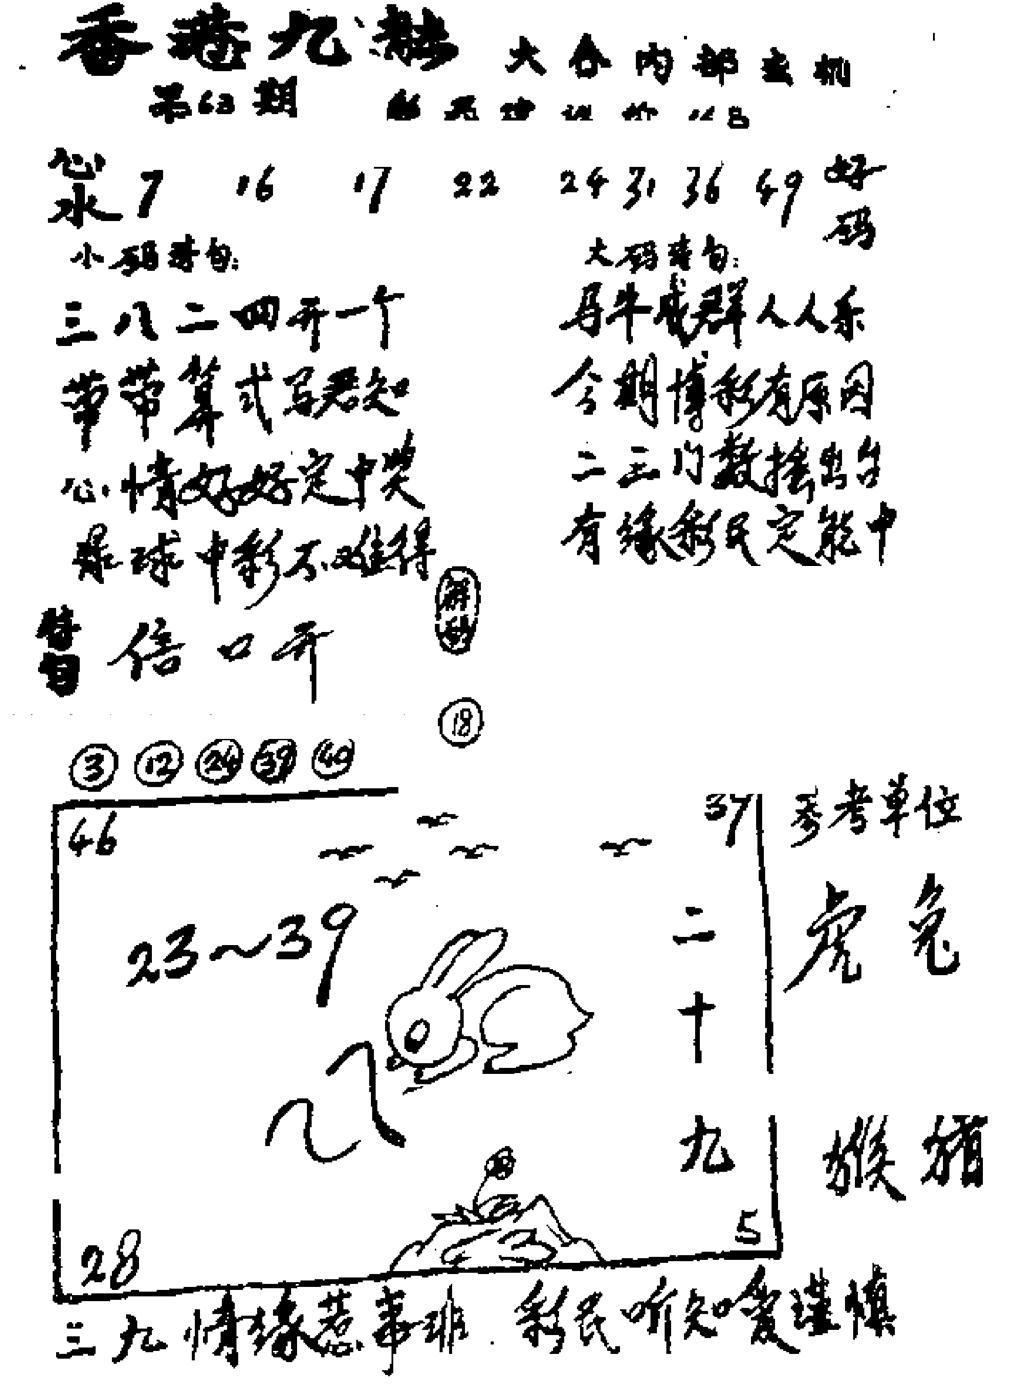 香港九龙 大合内部玄机
第63期
心水 7 16 17 22 24 31 36 49 好码
小码诗句:
三八二四开一个
带带算式马君知
心情好好定中奖
球中彩不难得
大码诗句:
马牛成群人人乐
今期博彩有原因
二三门数摇出台
有缘彩民定能中
倍口开
解
18
3 12 24 39 40
46 37
参考单位
23~39
虎兔
二十九
猴猪
28 5
三九情缘惹事班 彩民听知爱谨慎